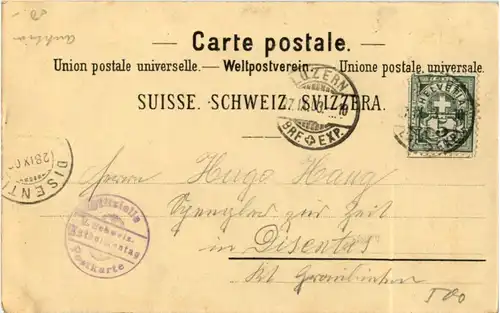 Carte postale.
Union postale universelle. — Weltpostverein. — Unione postale universale.
SUISSE. SCHWEIZ. SVIZZERA.
LUZERN
BRF. EXP.
HELVETIA
5
DISENTIS
28 IX 0
Offizielle
Schweiz.
Katholikentag
Postkarte
Herrn Hugo Haug
Spengler zur Zeit
in Disentis
Kt Graubünden